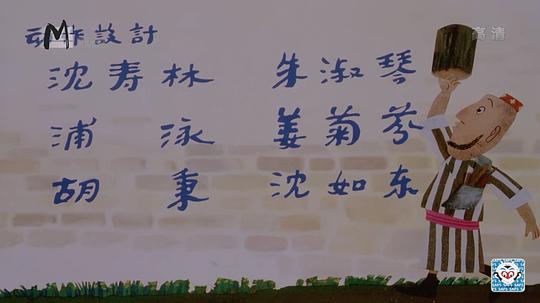 动作設計
M
高清
沈寿林 朱淑琴
浦泳 姜菊芬
胡秉 沈如东
SAFS SAFS SAFS